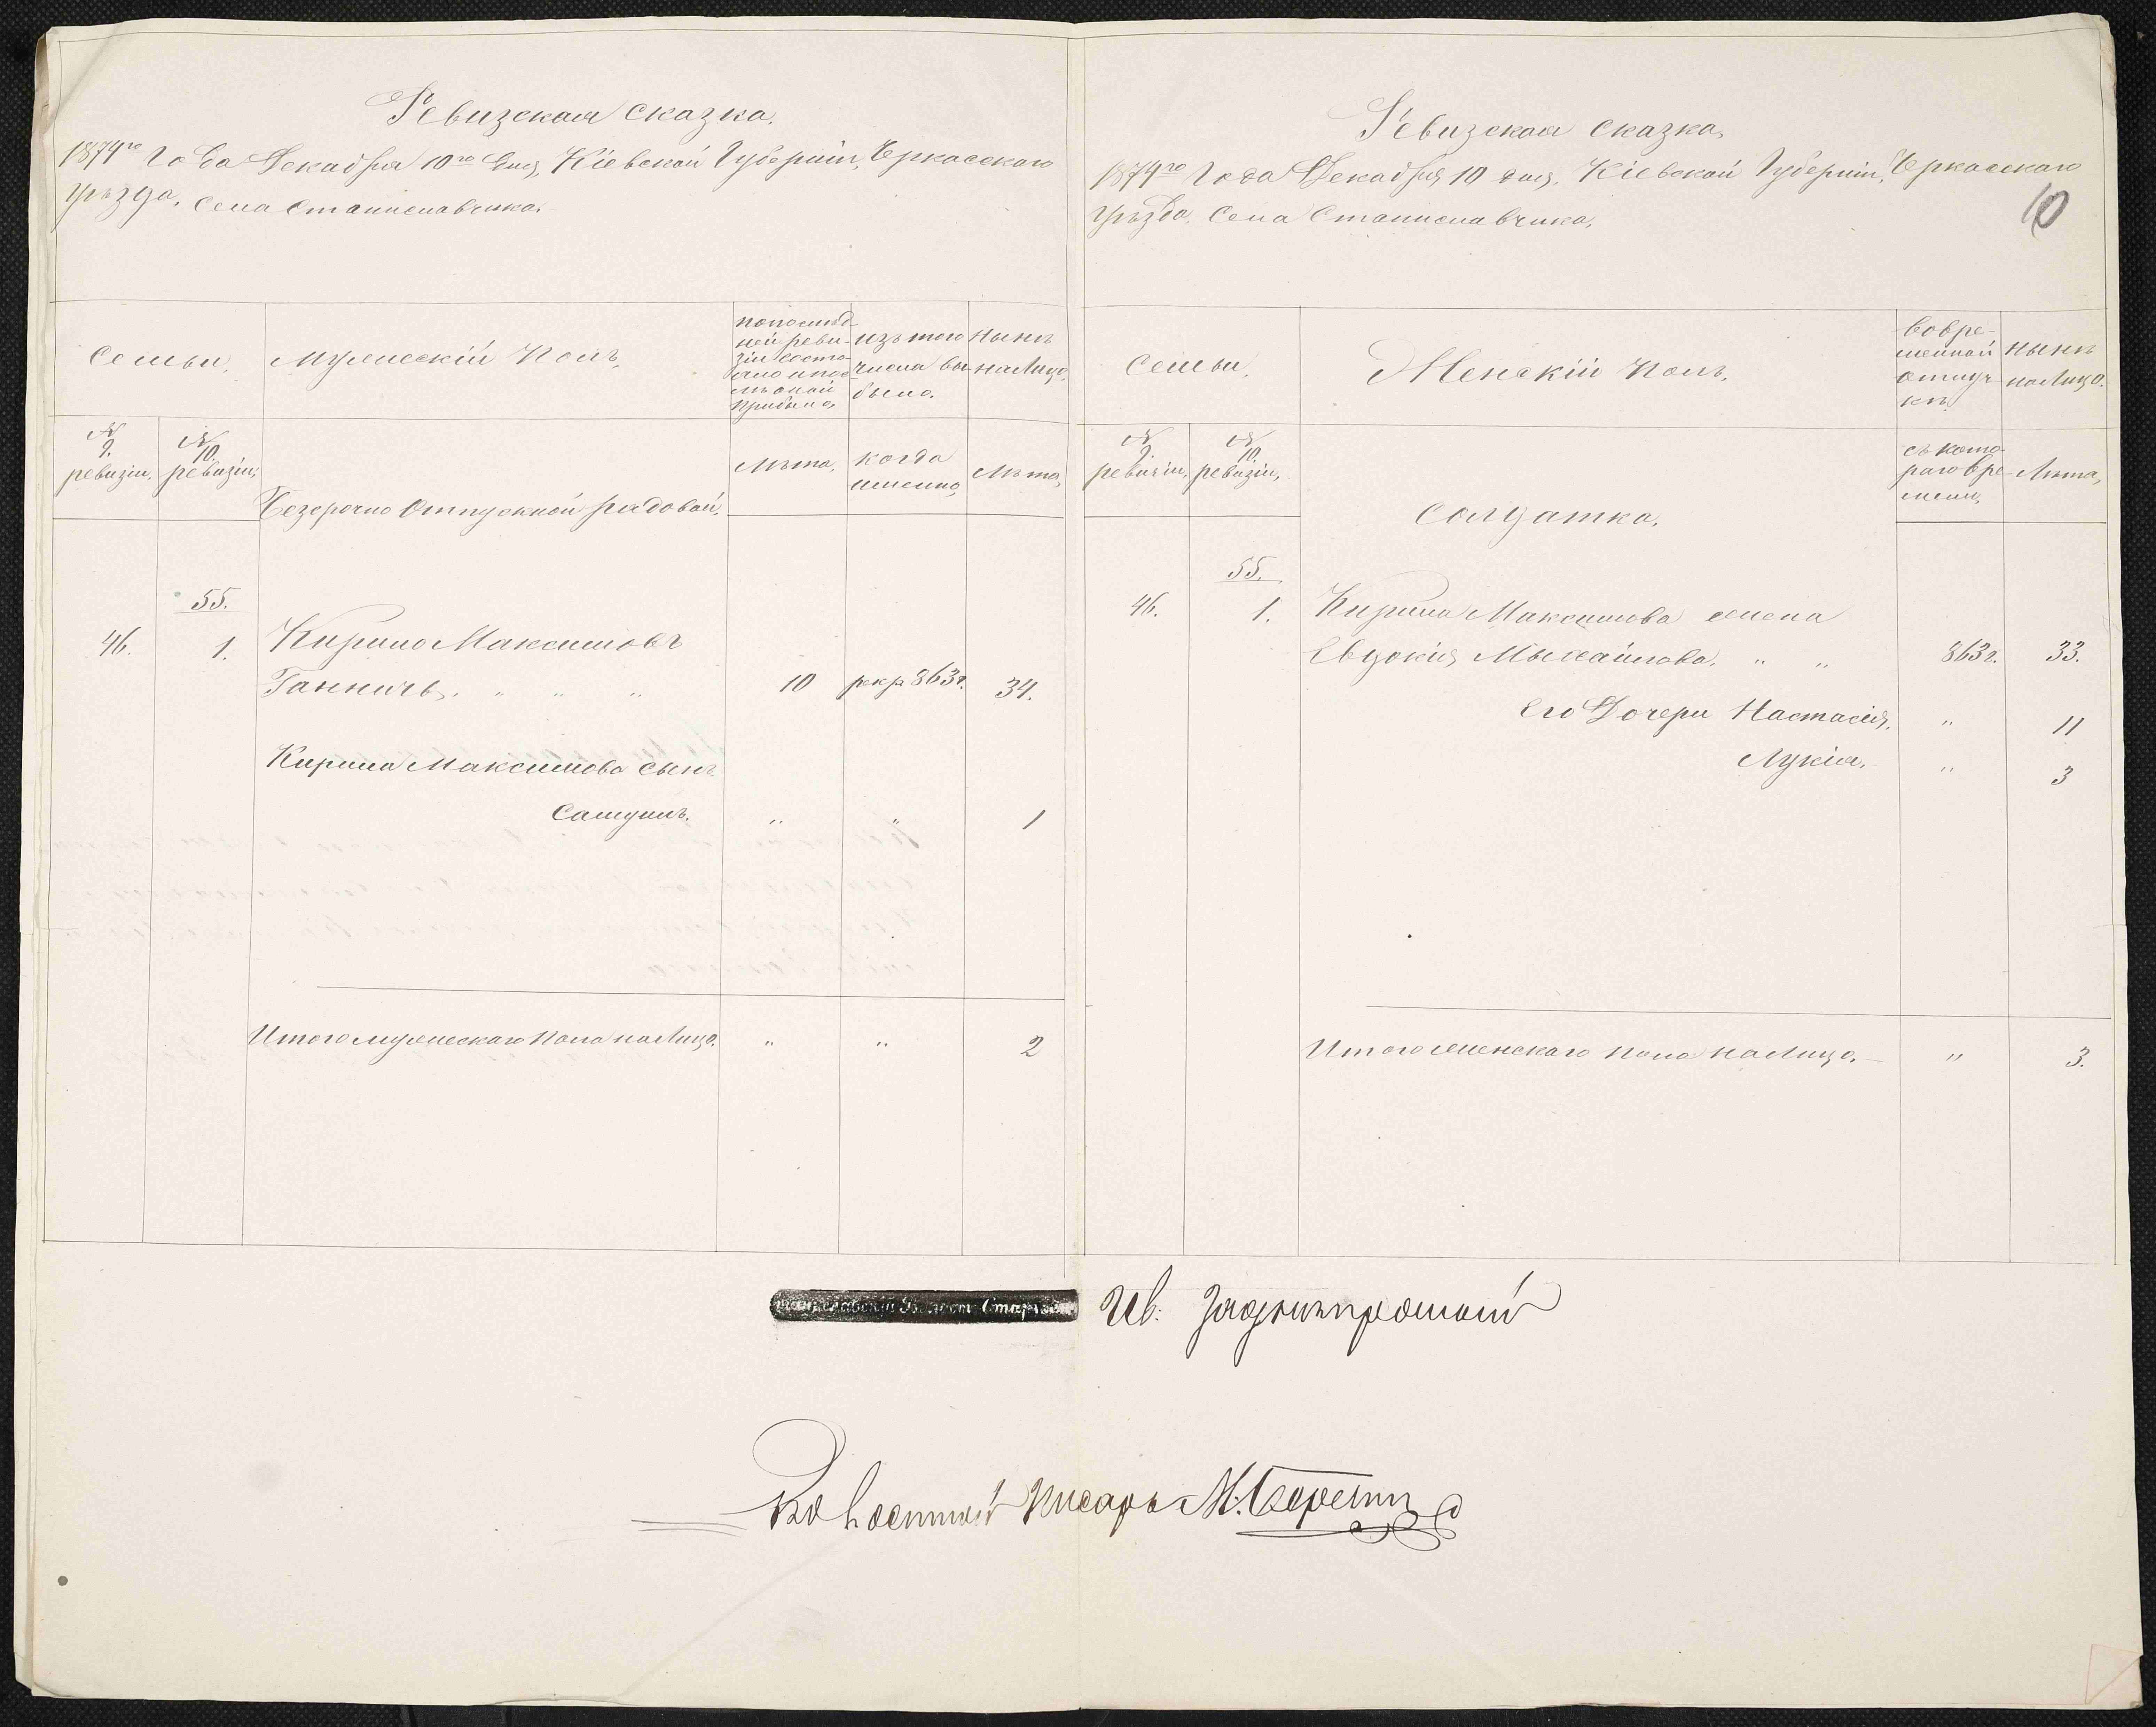 Ревизская сказка.
1874го года Декабря 10го дня, Кіевской Губерніи, Черкасскаго
уѣзда, села Станиславчика.
Семьи. Мужескій полъ,
по послѣд-
ней реви-
зіи состо-
яло и пос-
лѣ оной
прибыло,
изъ того
числа вы-
было.
Нынѣ
налицо,
№ 9. ревизіи.
№ 10. ревизіи,
Безсрочно отпускной рядовой.
лѣта,
когда
именно,
лѣта,
55.
46. 1. Кирило Максимовъ
Ганничь. " " " 10 рекр 863г. 34.
Кирила Максимова сынъ
Самуилъ. " " 1
Итого мужескаго пола налицо. " " 2
Ревизская сказка,
1874го года Декабря 10 дня, Кіевской Губерніи, Черкасскаго
уѣзда, села Станиславчика,
10
Семьи, Женскій полъ,
Во вре-
менной
отлуч-
кѣ
нынѣ
налицо.
№ 9. ревизіи,
№ 10. ревизіи,
Солдатка,
съ кото-
раго вре-
мени,
Лѣта,
55.
46. 1. Кирила Максимова жена
Евдокія Михайлова, " " 863г. 33.
Его дочери Настасія, " 11
Лукія, " 3
Итого женскаго пола налицо. " 3.
Волост. Старшина
Ив. Заднѣпро
Волостной писарь М.